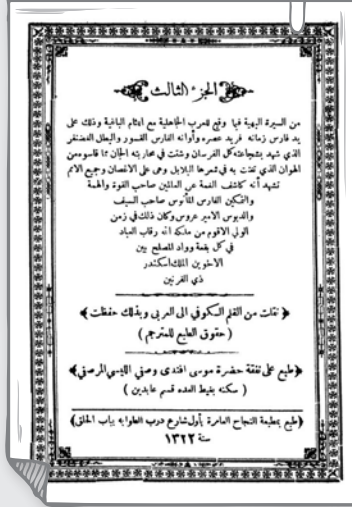 الجزء الثالث
من السيرة البهية فيما وقع للعرب الجاهلية مع ايتام الباغية وذلك على
يد فارس زمانه فريد عصره وأوانه الفارس القسور والبطل الغضنفر
الذي شهد بشجاعته كل الفرسان وشتت في محاربته الجان مما قاسوه من
الهوان الذي تغنت به في شعرها البلابل وهي على الاغصان وجميع الامم
تشهد أنه كاشف الغمة عن العالمين صاحب القوة والهمة
والتمكين الفارس المأنوس صاحب السيف
والدبوس الامير عروس وكان ذلك في زمن
الولي الاقوم من ملكه الله رقاب العباد
في كل بقعة وواد المصلح بين
الاخوين الملك اسكندر
ذي القرنين
﴿ نقلت من القلم السكوفي الى العربي وبذلك حفظت ﴾
( حقوق الطبع للمترجم )
﴿ طبع على نفقة حضرة موسى افندى وصفي الليسي المرصفي ﴾
( سكنه بغيط العده قسم عابدين )
﴿ طبع بمطبعة النجاح العامرة بأول شارع درب الطوابه بباب الخلق ﴾
سنة ١٣٢٢